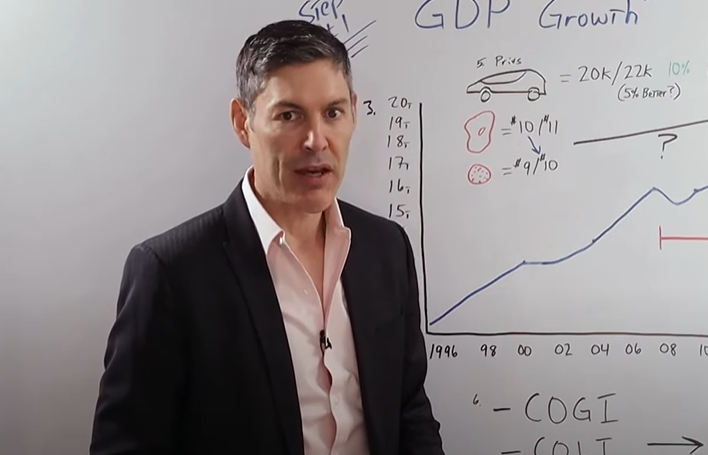 Step
GDP Growth
5. Prius
= 20k/22k 10%
(5% Better?)
3. 20T
19T
18T
17T
16T
15T
= $10/$11
= $9/$10
?
1996 98 00 02 04 06 08 10
6 - COGI
- COLI →